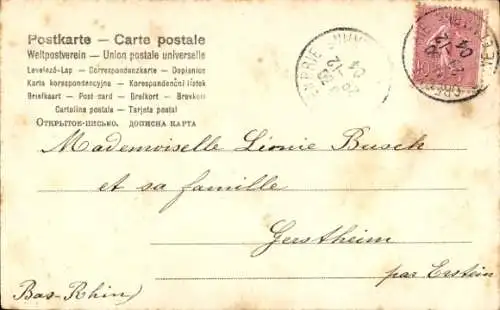 Postkarte — Carte postale
Weltpostverein — Union postale universelle
Levelező-Lap — Correspondenzkarte — Dopisnice
Karta korespondencyjna — Korespondenční lístek
Briefkaart — Post card — Brefkort — Brevkort
Cartolina postale — Tarjeta postal
Открытое-письмо. Дописна карта
Mademoiselle Léonie Busch
et sa famille
Gerstheim
par Erstein
(Bas-Rhin)